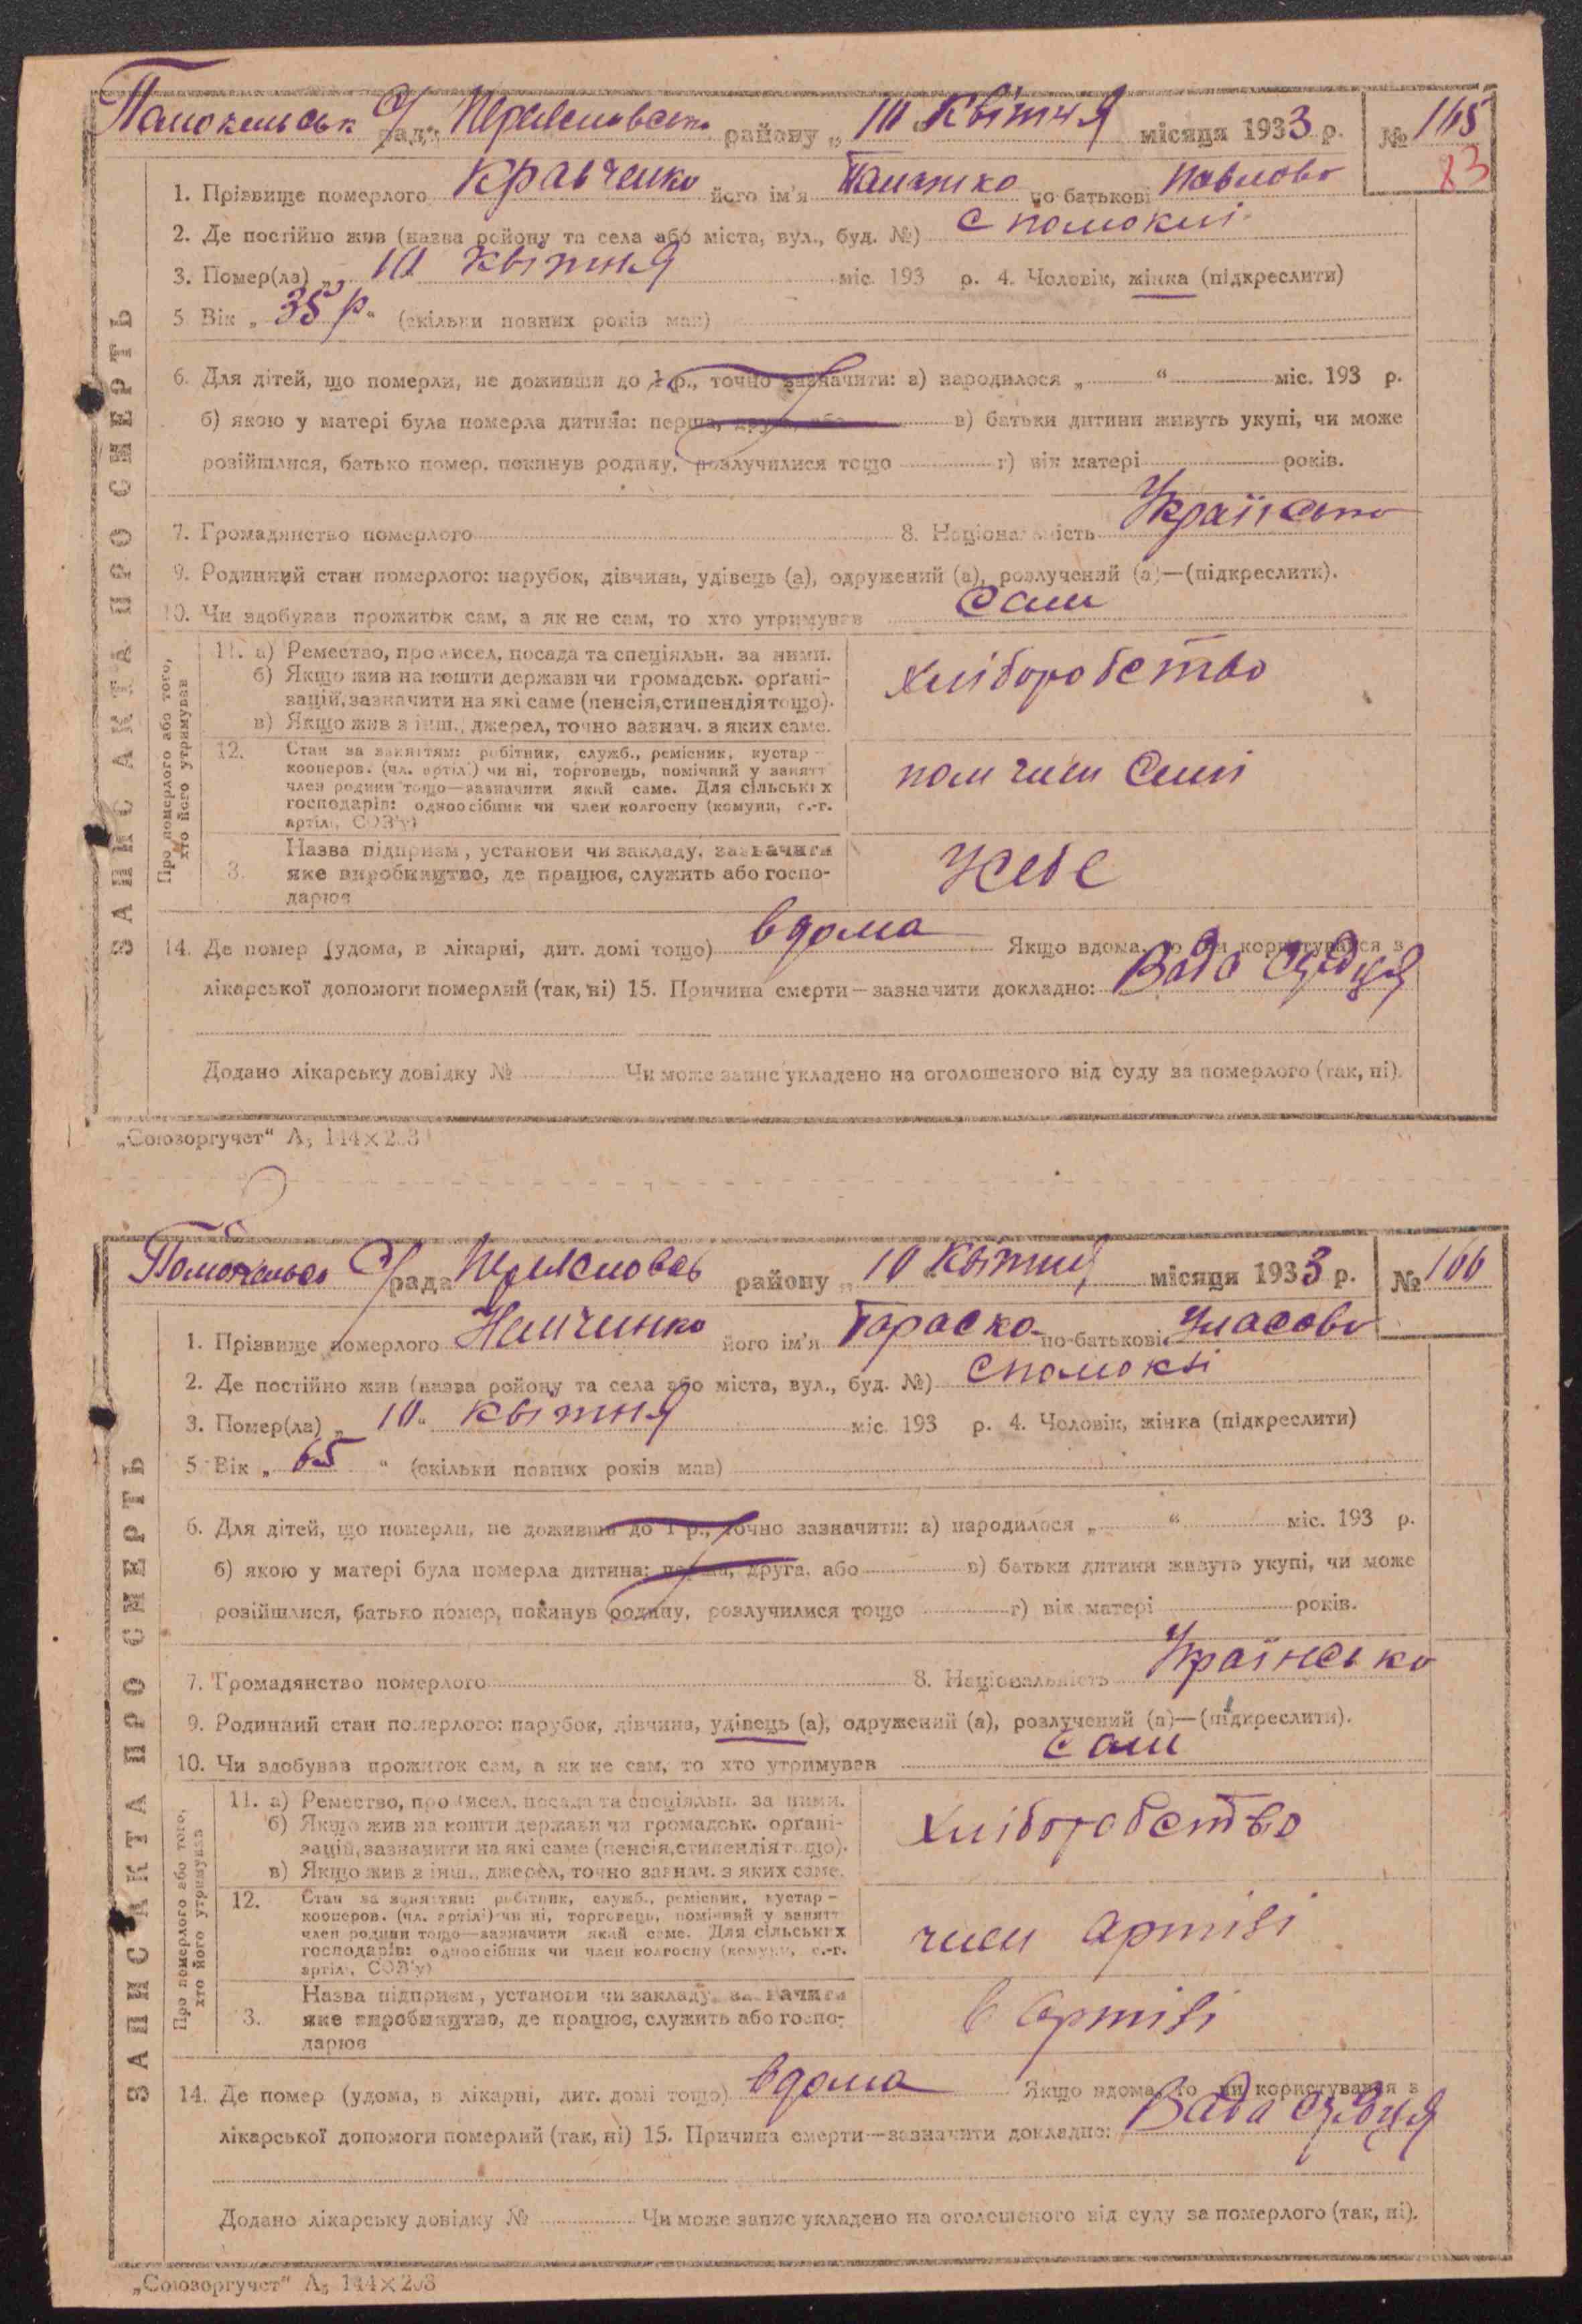 Помокельськ С/рада Переяславсько району „ 10 " Квітня місяця 1933 р. № 165
83
1. Прізвище померлого Кравченко його ім'я по-батькові Павлово
2. Де постійно жив (назва ройону та села або міста, вул., буд. №) с помоклі
3. Помер(ла) „ 10 квітня міс. 193 р. 4. Чоловік, жінка (підкреслити)
5 Вік „ 35 р. “ (скільки повних років мав)
6. Для дітей, що померли, не доживши до 1 р., точно зазначити: а) народилося „ “ міс. 193 р.
б) якою у матері була померла дитина: перша, друга, або в) батьки дитини живуть укупі, чи може
розійшлися, батько помер, покинув родину, розлучилися тощо г) вік матері років.
7. Громадянство померлого 8. Національність Українсько
9. Родинний стан померлого: парубок, дівчина, удівець (а), одружений (а), розлучений (а)—(підкреслити).
10. Чи здобував прожиток сам, а як не сам, то хто утримував Сам
ЗАПИС АКТА ПРО СМЕРТЬ
Про померлого або того, хто його утримував
11. а) Ремество, промисел, посада та спеціяльн. за ними.
б) Якщо жив на кошти держави чи громадськ. органі-
зацій, зазначити на які саме (пенсія, стипендія тощо).
в) Якщо жив з інш. джерел, точно зазнач. з яких саме.
хліборобство
12. Стан за заняттям: робітник, служб., ремісник, кустар –
кооперов. (чл. артілі) чи ні, торговець, помічний у занятт
член родини тощо—зазначити який саме. Для сільських
господарів: одноосібник чи член колгоспу (комуни, с.-г.
артілі, СОЗ'у)
член
3. Назва підприєм, установи чи закладу, зазначити
яке виробництво, де працює, служить або госпо-
дарює
14. Де помер (удома, в лікарні, дит. домі тощо) вдома Якщо вдома, то чи користувався з
лікарської допомоги померлий (так, ні) 15. Причина смерти—зазначити докладно: Вада сердця
Додано лікарську довідку № Чи може запис укладено на оголошеного від суду за померлого (так, ні).
„Союзоргучет“ А₅ 144×203
Помокельсь С/рада Переяславсь району „ 10 Квітня місяця 1933 р. № 166
1. Прізвище померлого Немченко його ім'я Тараско по-батькові Уласово
2. Де постійно жив (назва ройону та села або міста, вул., буд. №) с помоклі
3. Помер(ла) „ 10 “ квітня міс. 193 р. 4. Чоловік, жінка (підкреслити)
5 Вік „ 65 “ (скільки повних років мав)
6. Для дітей, що померли, не доживши до 1 р., точно зазначити: а) народилося „ “ міс. 193 р.
б) якою у матері була померла дитина: перша, друга, або в) батьки дитини живуть укупі, чи може
розійшлися, батько помер, покинув родину, розлучилися тощо г) вік матері років.
7. Громадянство померлого 8. Національність Українсько
9. Родинний стан померлого: парубок, дівчина, удівець (а), одружений (а), розлучений (а)—(підкреслити).
10. Чи здобував прожиток сам, а як не сам, то хто утримував сам
ЗАПИС АКТА ПРО СМЕРТЬ
Про померлого або того, хто його утримував
11. а) Ремество, промисел, посада та спеціяльн. за ними.
б) Якщо жив на кошти держави чи громадськ. органі-
зацій, зазначити на які саме (пенсія, стипендія тощо).
в) Якщо жив з інш. джерел, точно зазнач. з яких саме.
хліборобство
12. Стан за заняттям: робітник, служб., ремісник, кустар –
кооперов. (чл. артілі) чи ні, торговець, помічний у занятт
член родини тощо—зазначити який саме. Для сільських
господарів: одноосібник чи член колгоспу (комуни, с.-г.
артілі, СОЗ'у)
член артілі
3. Назва підприєм, установи чи закладу, зазначити
яке виробництво, де працює, служить або госпо-
дарює
в артілі
14. Де помер (удома, в лікарні, дит. домі тощо) вдома Якщо вдома, то чи користувався з
лікарської допомоги померлий (так, ні) 15. Причина смерти—зазначити докладно: Вада сердця
Додано лікарську довідку № Чи може запис укладено на оголошеного від суду за померлого (так, ні).
„Союзоргучет“ А₅ 144×203